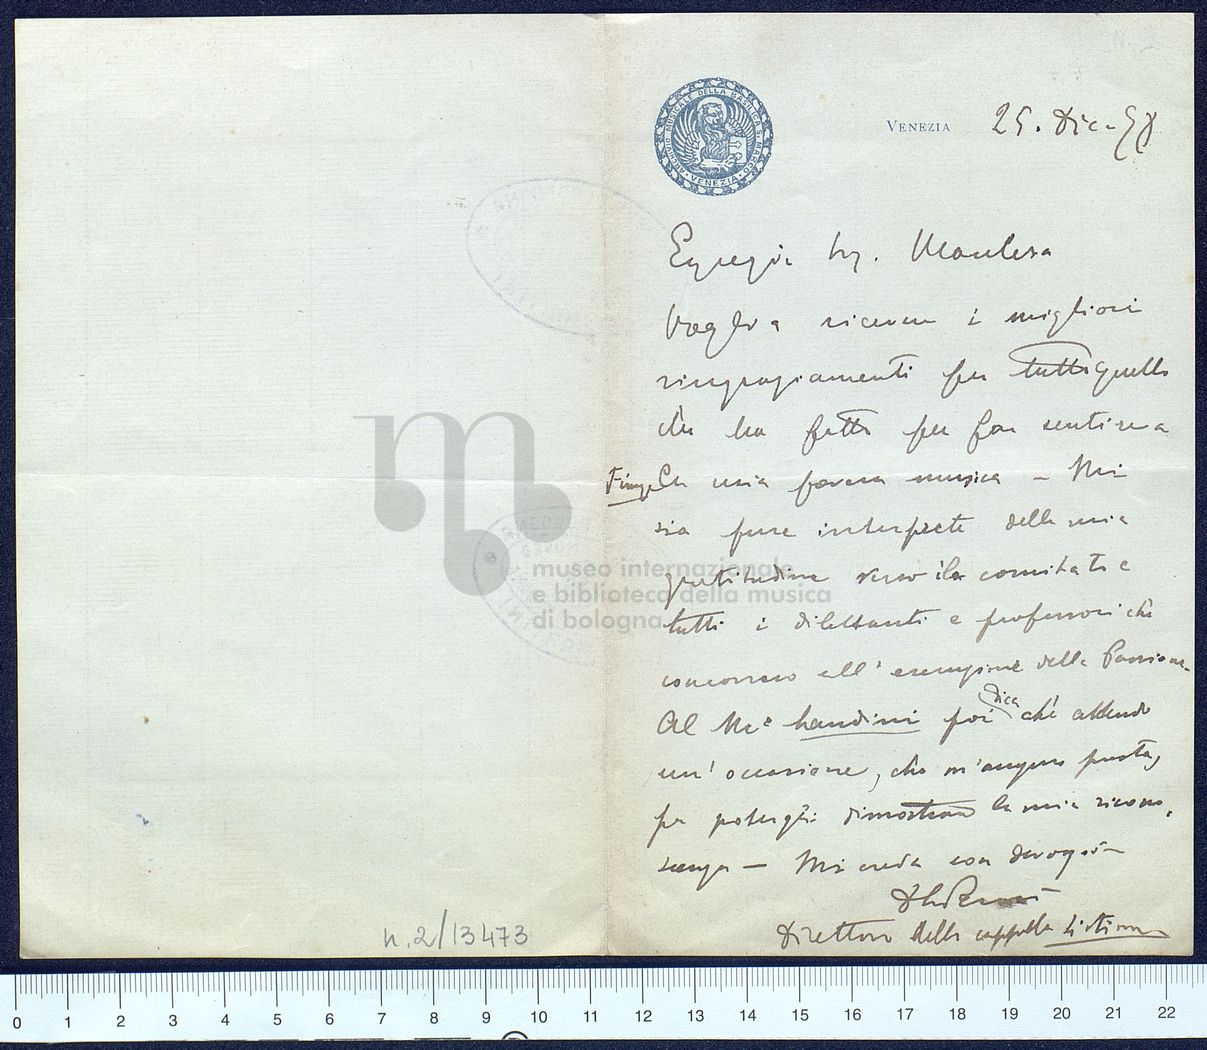 ARCHIVIO MUSICALE DELLA BASILICA S. MARCO
VENEZIA
VENEZIA 25. Dic. 98
Egregio Sig.
Voglia ricevere i migliori
ringraziamenti per tutto quello
che ha fatto per far sentire a
la mia povera musica – Mi
sia pure interprete della mia
gratitudine verso il comitato e
tutti i dilettanti e professori che
concorsero all'esecuzione della Passione
Al Mo Landini poi dica che attendo
un'occasione, che m'auguro presta,
per potergli dimostrare la mia ricono
scenza – Mi creda con devozione
Direttore della cappella Sistina
n. 2/13473
museo internazionale
e biblioteca della musica
di bologna
0 1 2 3 4 5 6 7 8 9 10 11 12 13 14 15 16 17 18 19 20 21 22